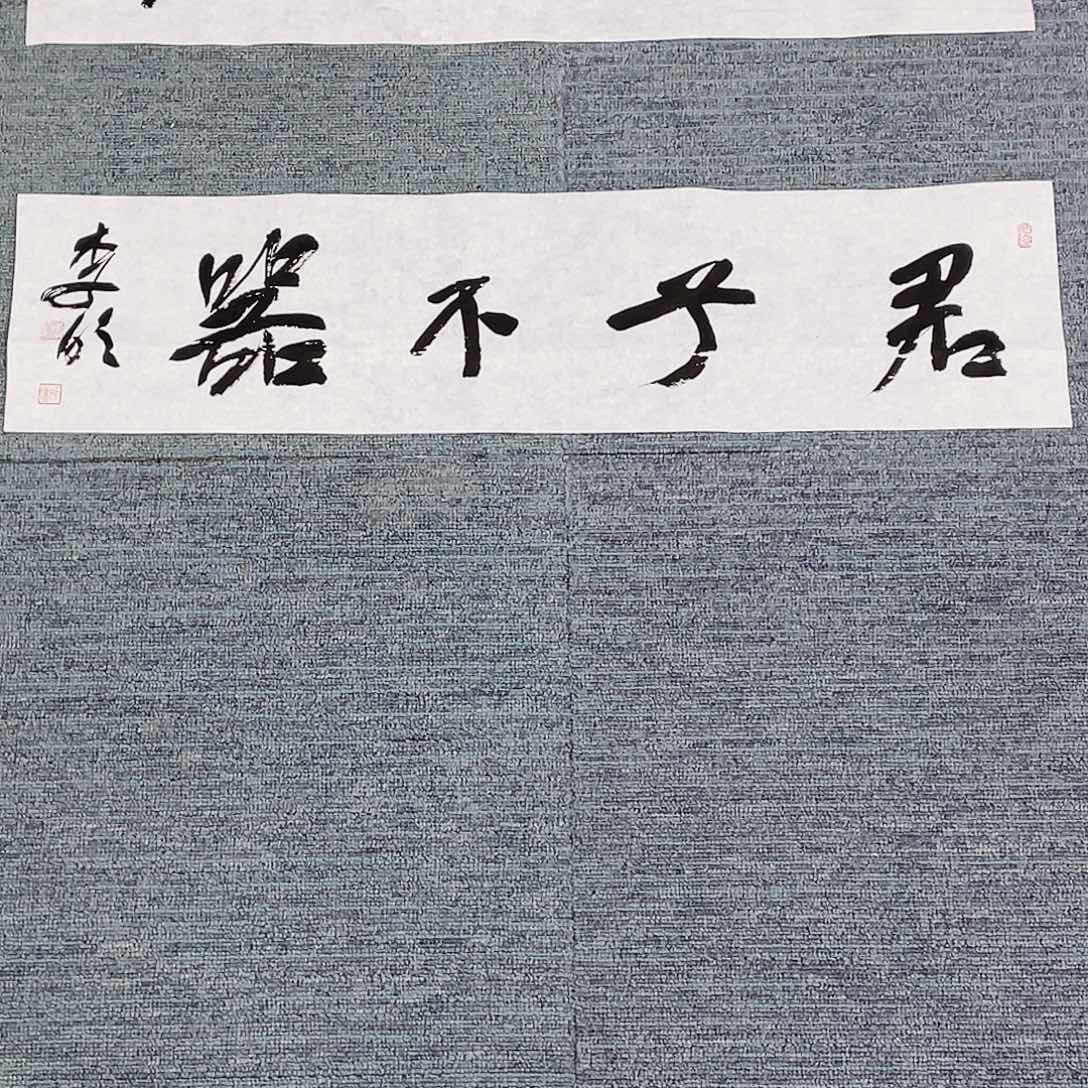 君子不器
李